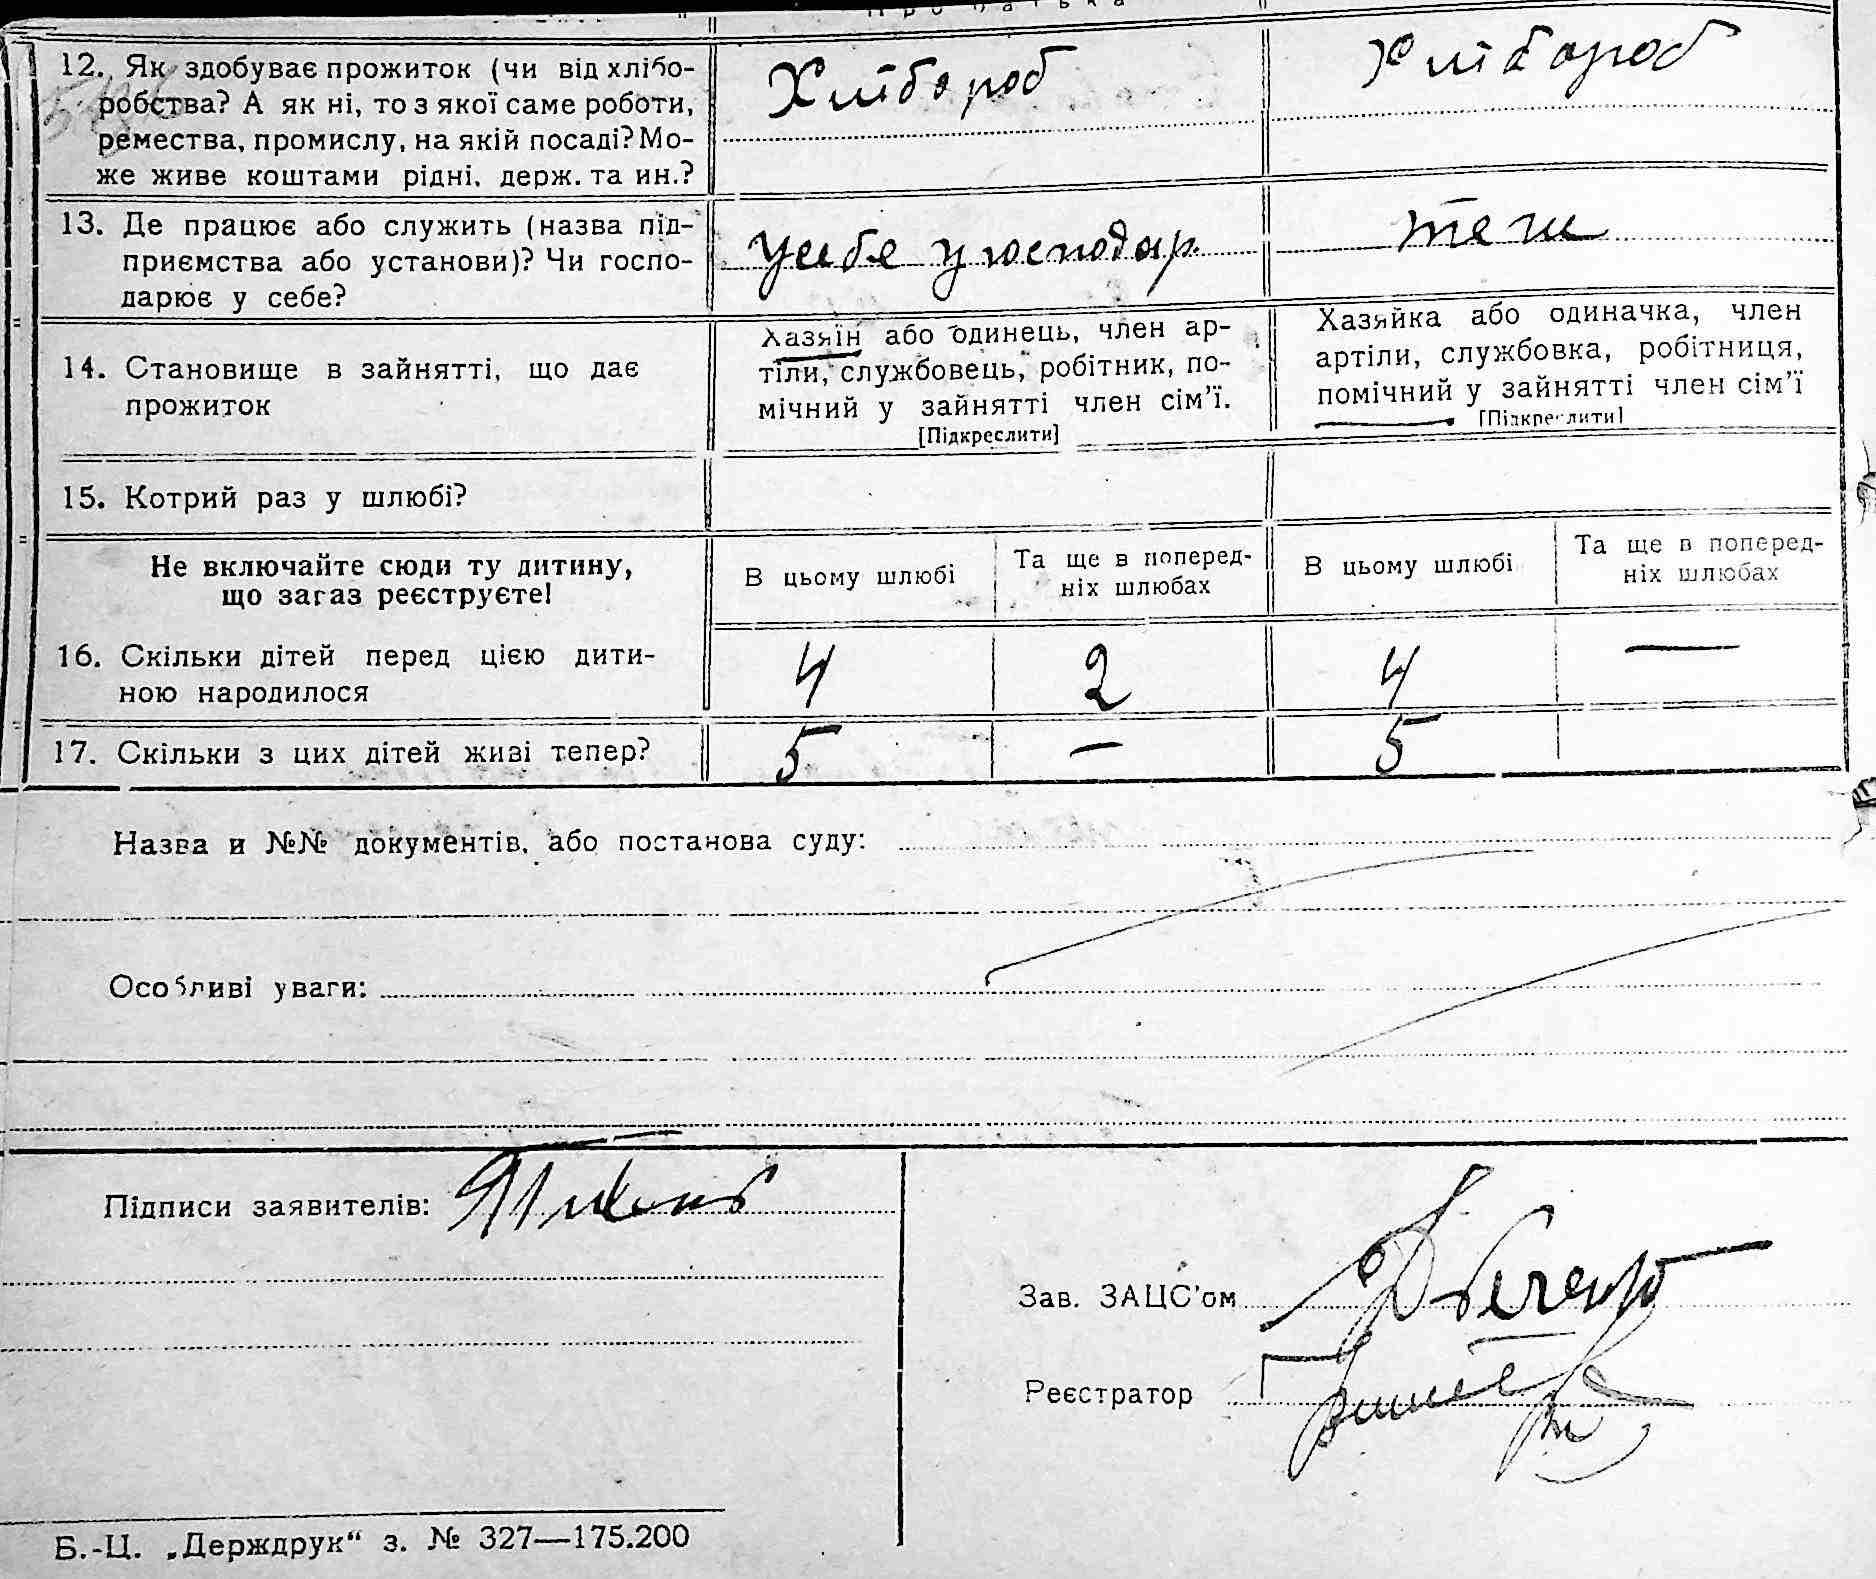 Про батька
12. Як здобуває прожиток (чи від хлібо-
робства? А як ні, то з якої саме роботи,
ремества, промислу, на якій посаді? Мо-
же живе коштами рідні, держ. та ин.?
Хлібороб
Хлібороб
13. Де працює або служить (назва під-
приємства або установи)? Чи госпо-
дарює у себе?
у себе у господар.
14. Становище в зайнятті, що дає
прожиток
Хазяїн або одинець, член ар-
тіли, службовець, робітник, по-
мічний у зайнятті член сім'ї.
[Підкреслити]
Хазяйка або одиначка, член
артіли, службовка, робітниця,
помічний у зайнятті член сім'ї
[Підкреслити]
15. Котрий раз у шлюбі?
Не включайте сюди ту дитину,
що зараз реєструєте!
В цьому шлюбі
Та ще в поперед-
ніх шлюбах
В цьому шлюбі
Та ще в поперед-
ніх шлюбах
16. Скільки дітей перед цією дити-
ною народилося
4 2 4 —
17. Скільки з цих дітей живі тепер?
5 — 5
Назва и №№ документів, або постанова суду:
Особливі уваги:
Підписи заявителів:
Зав. ЗАЦС'ом
Реєстратор
Б.-Ц. „Держдрук" з. № 327—175.200